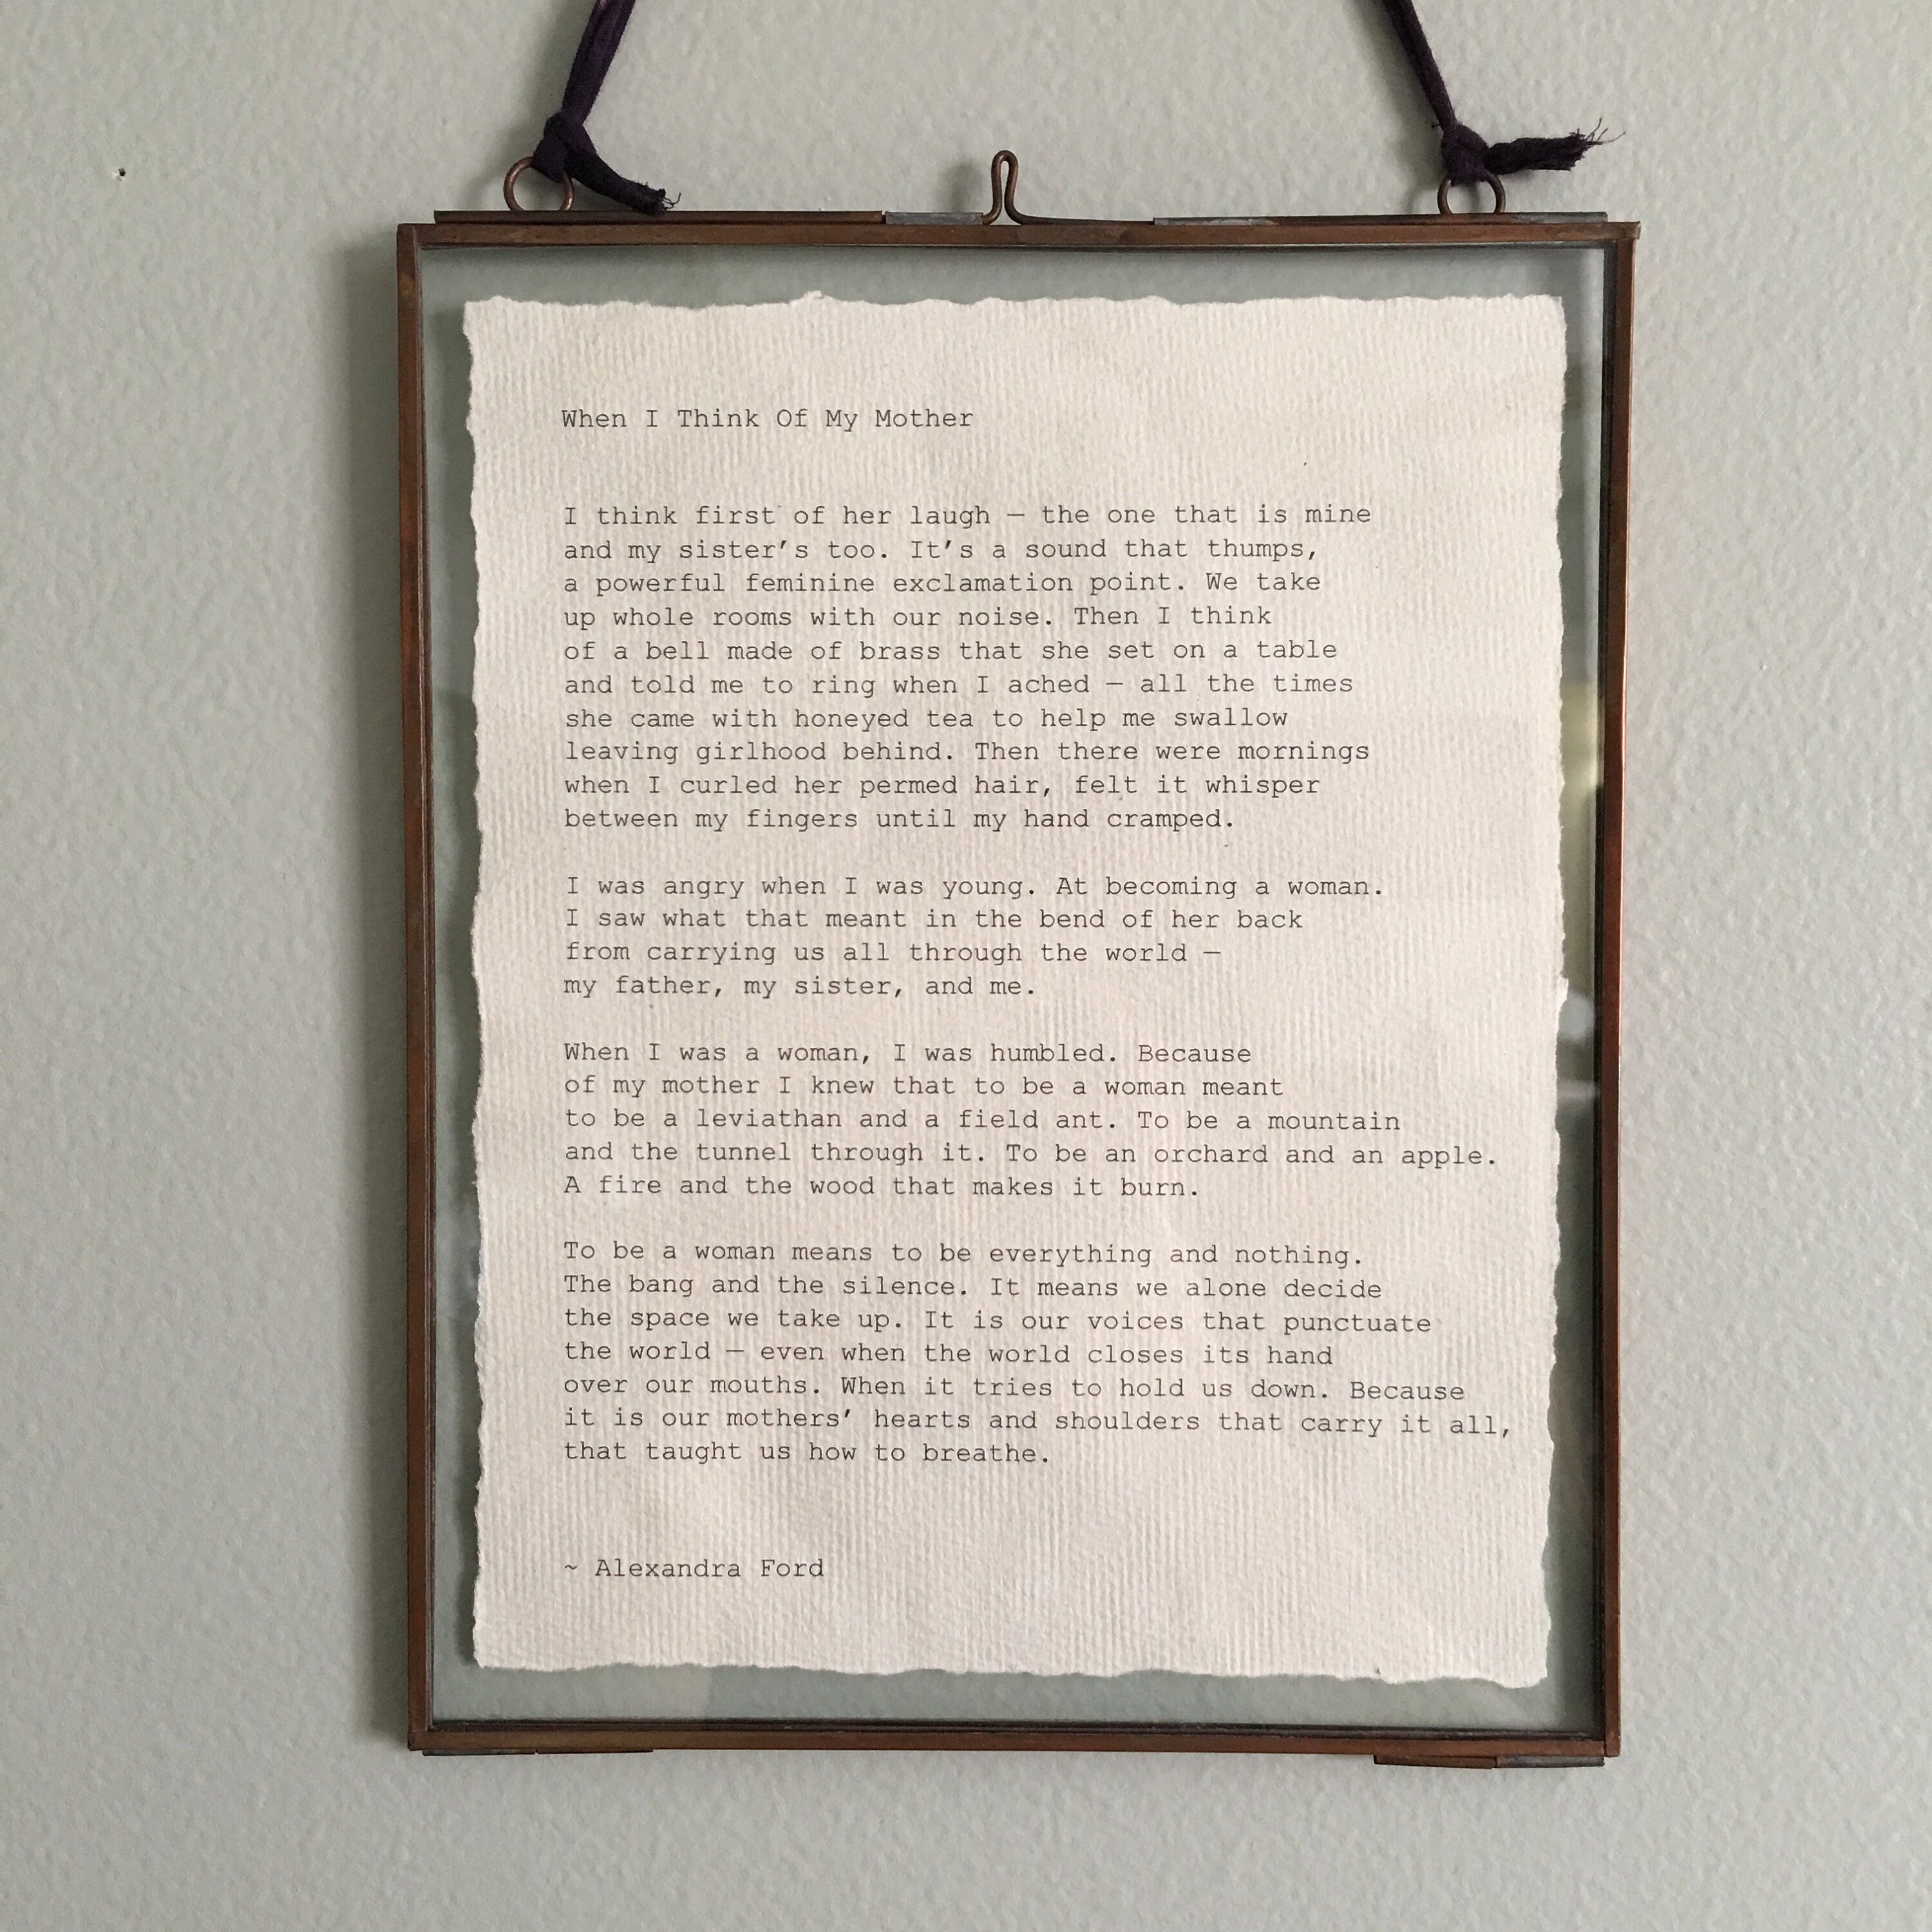 When I Think Of My Mother
I think first of her laugh — the one that is mine
and my sister's too. It's a sound that thumps,
a powerful feminine exclamation point. We take
up whole rooms with our noise. Then I think
of a bell made of brass that she set on a table
and told me to ring when I ached — all the times
she came with honeyed tea to help me swallow
leaving girlhood behind. Then there were mornings
when I curled her permed hair, felt it whisper
between my fingers until my hand cramped.
I was angry when I was young. At becoming a woman.
I saw what that meant in the bend of her back
from carrying us all through the world —
my father, my sister, and me.
When I was a woman, I was humbled. Because
of my mother I knew that to be a woman meant
to be a leviathan and a field ant. To be a mountain
and the tunnel through it. To be an orchard and an apple.
A fire and the wood that makes it burn.
To be a woman means to be everything and nothing.
The bang and the silence. It means we alone decide
the space we take up. It is our voices that punctuate
the world — even when the world closes its hand
over our mouths. When it tries to hold us down. Because
it is our mothers' hearts and shoulders that carry it all,
that taught us how to breathe.
~ Alexandra Ford